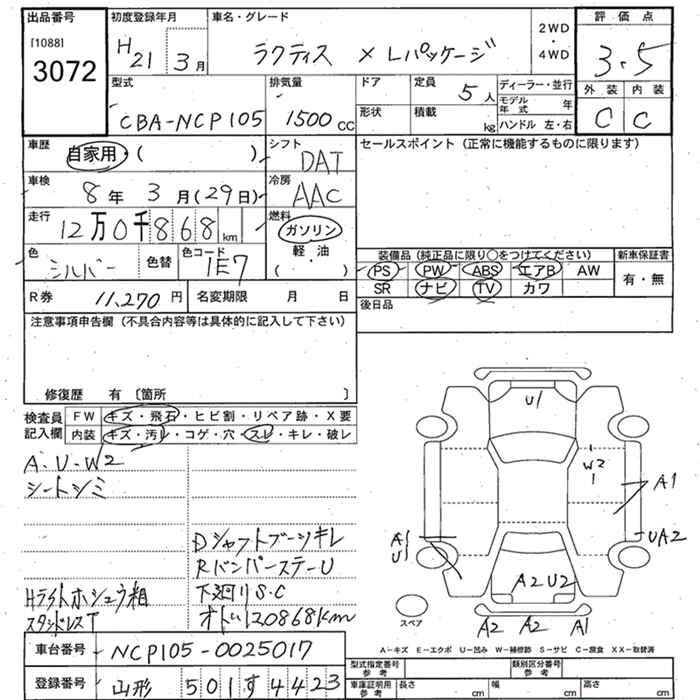 出品番号
[1088]
3072
初度登録年月
H21 3月
車名・グレード
ラクティス X Lパッケージ
2WD
・
4WD
評価点
3.5
外装 内装
C C
型式
CBA-NCP105
排気量
1500 cc
ドア
形状
定員
5人
積載
kg
ディーラー・並行
モデル年式 年
ハンドル 左・右
車歴
自家用・( )
シフト
DAT
車検
8年 3月(29日)
冷房
AAC
走行
12万0千868 km
燃料
ガソリン
軽・油
( )
色
シルバー
色替
色コード
1E7
R券 11,270円
名変期限 月 日
セールスポイント (正常に機能するものに限ります)
装備品 (純正品に限り○をつけてください)
PS PW ABS エアB AW
SR ナビ TV カワ
新車保証書
有・無
後日品
注意事項申告欄 (不具合内容等は具体的に記入して下さい)
修復歴 有 〔箇所 〕
検査員記入欄
FW キズ・飛石・ヒビ割・リペア跡・X要
内装 キズ・汚レ・コゲ・穴・スレ・キレ・破レ
A・U・W2
シートシミ
Dシャフトブーツキレ
RバンパーステーU
Hライトホシュウ相
下廻りS・C
スタンドレスT
オドい120868km
U1
W2
1
A1
UA2
A1
U1
A2U2
A2 A2 A1
スペア
A-キズ E-エクボ U-凹み W-補修跡 S-サビ C-腐食 XX-取替済
車台番号 NCP105-0025017
登録番号 山形 501す4423
型式指定番号
参考
類別区分番号
参考
車庫証明用
参考
長さ cm
幅 cm
高さ cm